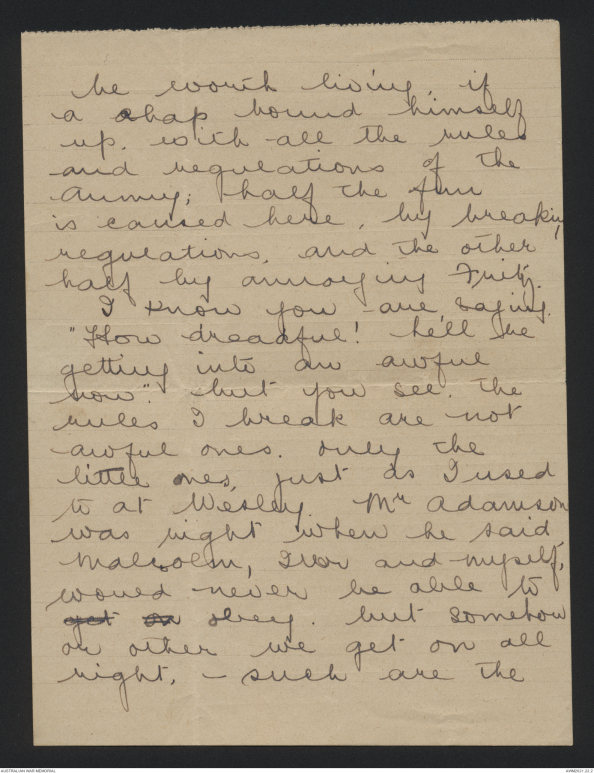 be worth living, if
a chap bound himself
up. with all the rules
and regulations of the
Army; half the fun
is caused here, by breaking
regulations, and the other
half by annoying Fritz.
I know you are, saying.
"How dreadful! he'll be
getting into an awful
row". but you see. the
rules I break are not
awful ones. only the
little ones, just as I used
to at Wesley. Mr Adamson
was right when he said,
Malcolm, Ivor and myself,
would never be able to
get on obey. but somehow
or other we get on all
right, – such are the
AUSTRALIAN WAR MEMORIAL